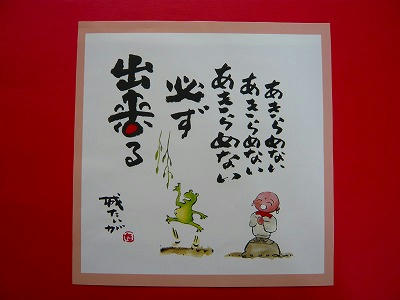 あきらめない
あきらめない
あきらめない
必ず
出来る